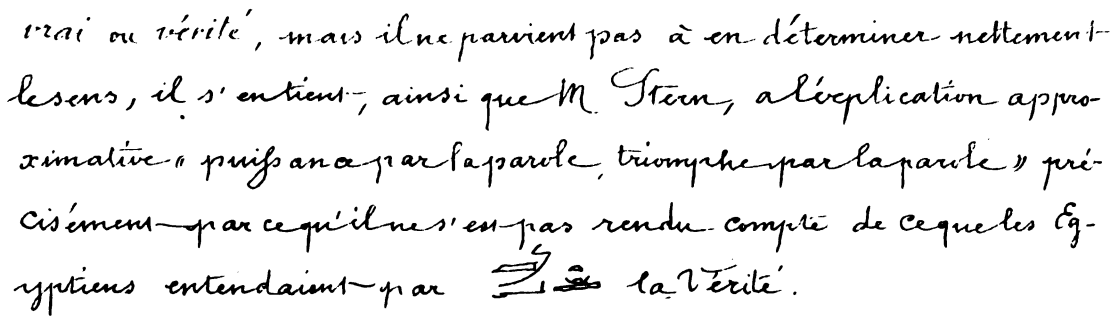 vrai ou vérité, mais il ne parvient pas à en déterminer nettement
le sens, il s'en tient, ainsi que M. Stern, a l'éxplication appro-
ximative « puissance par la parole, triomphe par la parole » pré-
cisément parce qu'il ne s'est pas rendu compte de ce que les Eg-
yptiens entendaient par la Vérité.